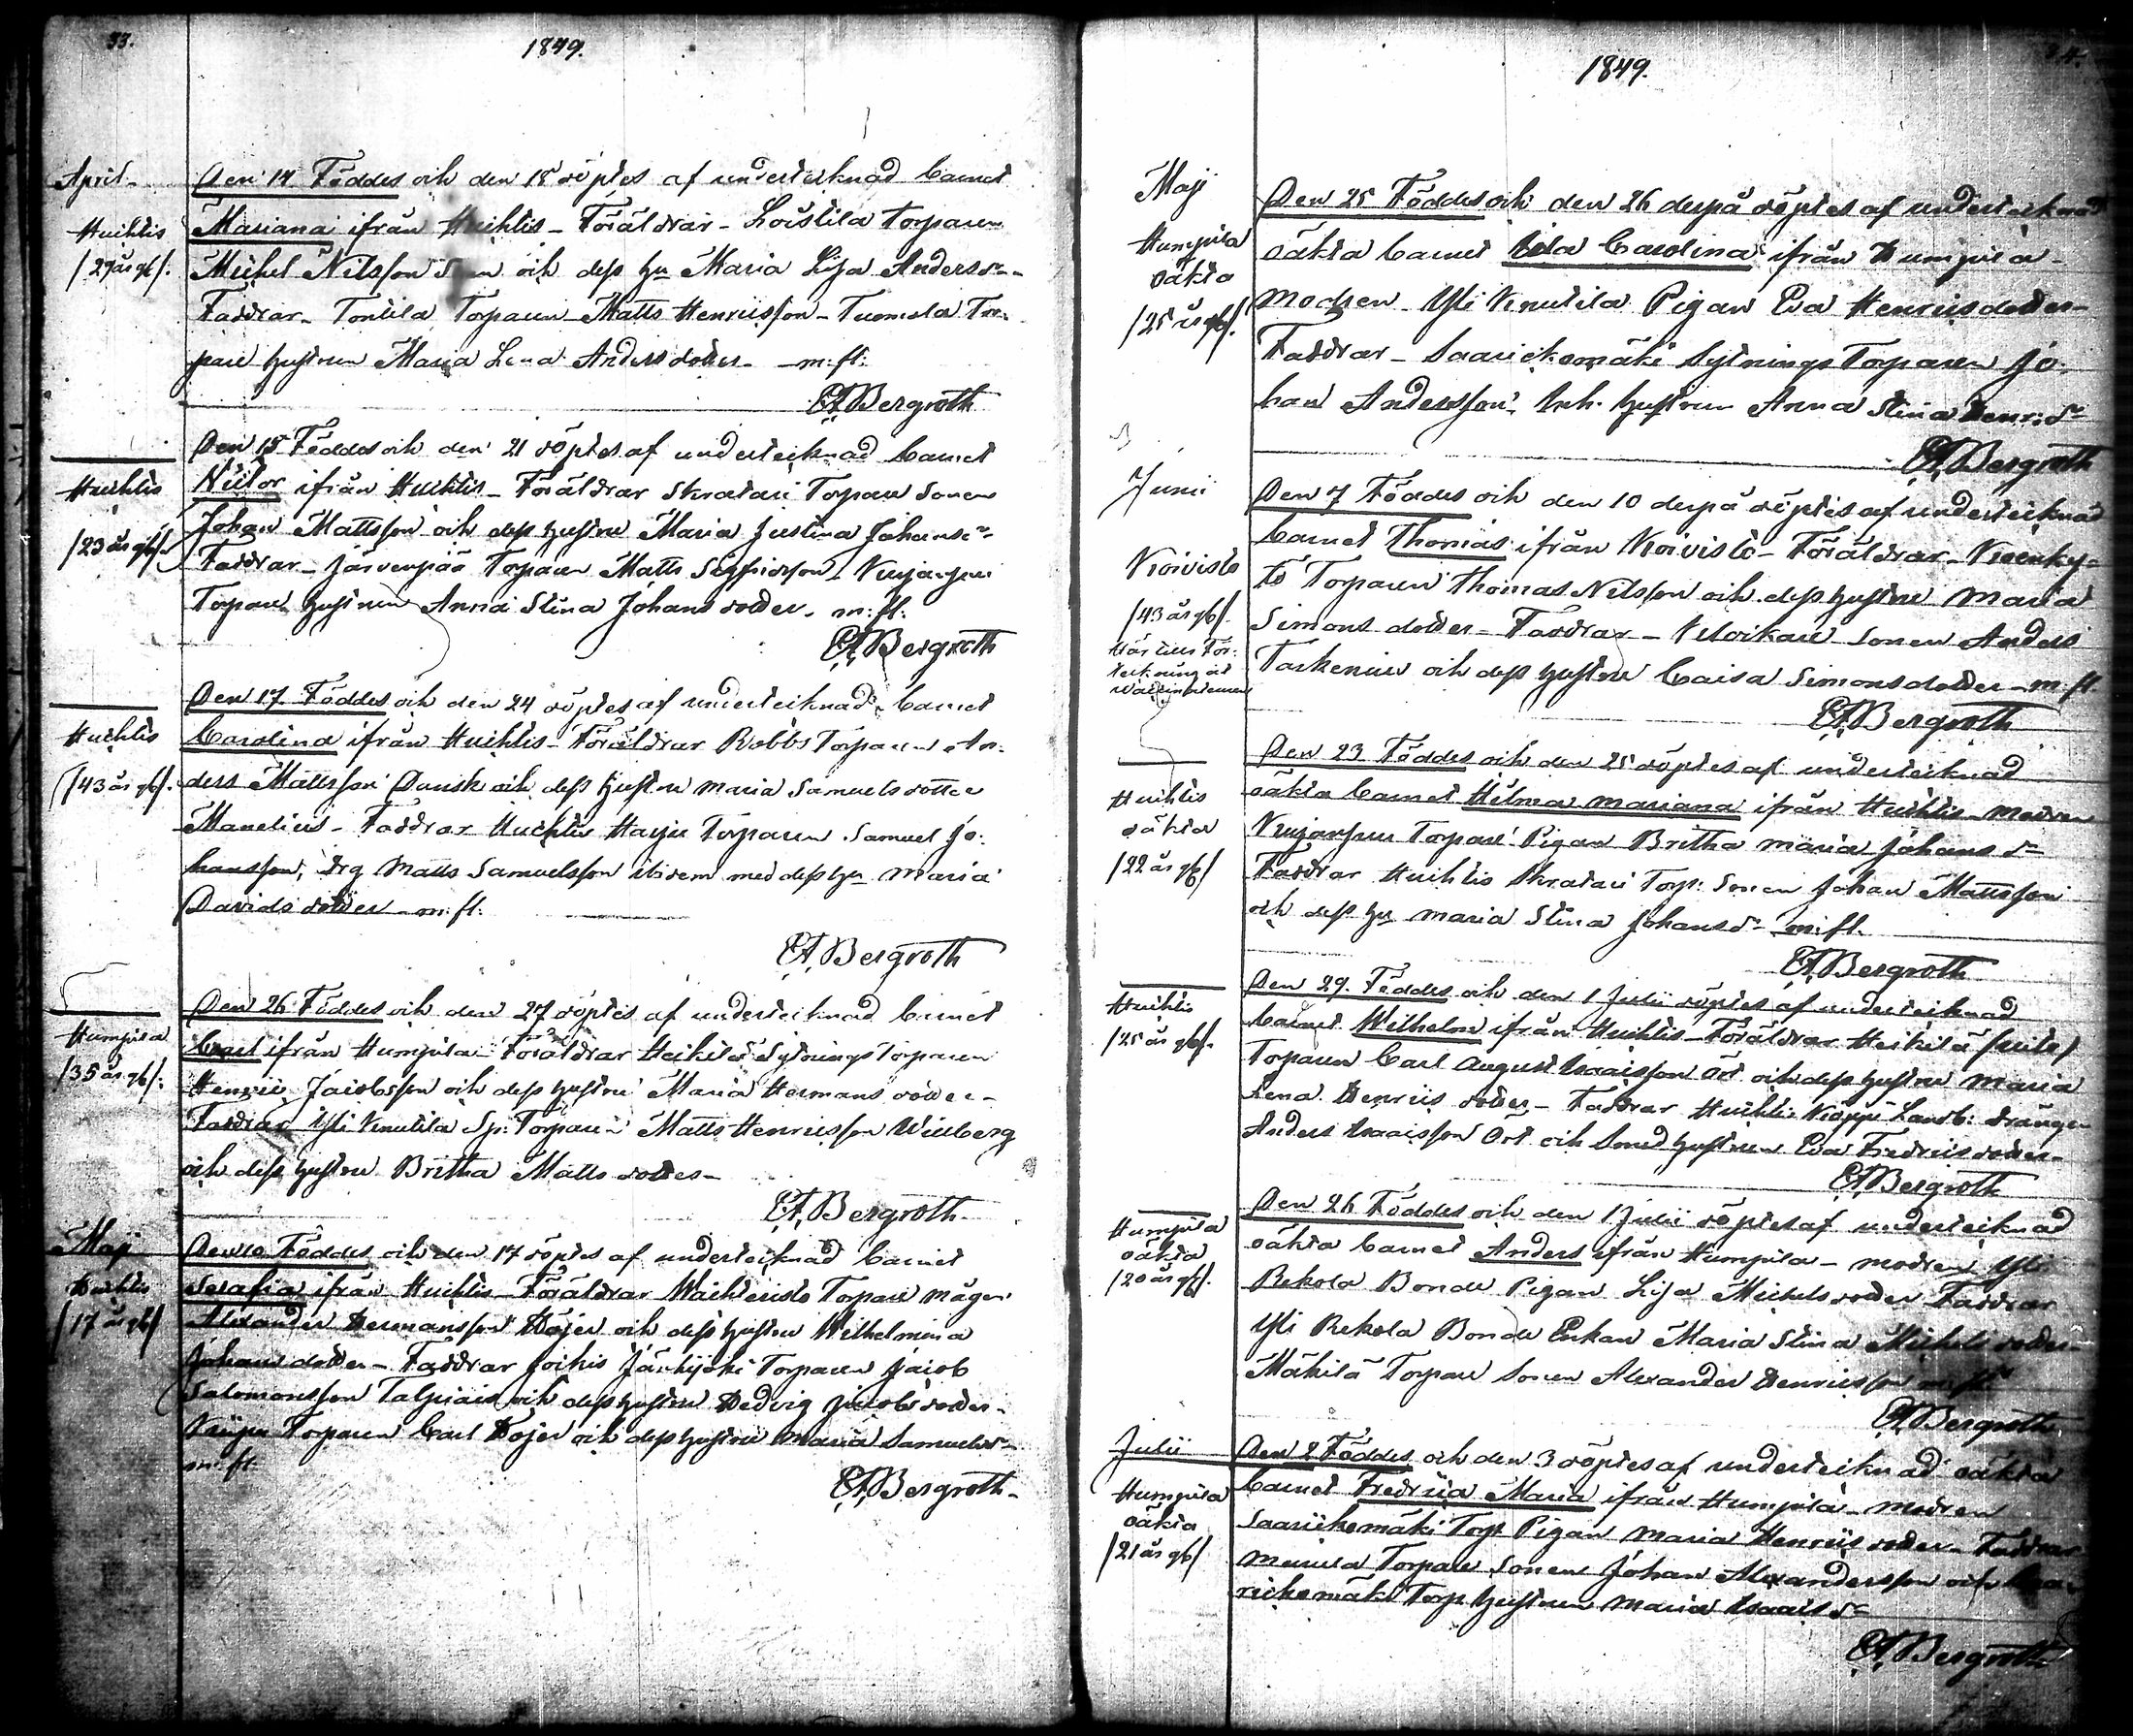 33.
1849.
April
Den 14 Föddes och den 15 döptes af undertecknad barnet
Huihtis
Mariana ifrån Huihtis - Föräldrar - Loistila Torparen
/29 år gl/.
Michel Nilsson och dess hu Maria Lisa Andersdr
Faddrar - Tontila Torparen Matts Henricsson - Tuomola Tor-
pare hustrun Maria Lena Andersdotter - m: fl:
EA Bergroth
Den 15 Föddes och den 21 döptes af undertecknad barnet
Huihtis
Nestor ifrån Huihtis - Föräldrar Skratari Torpare Sonen
/23 år gl/
Johan Mattsson och dess hustru Maria Justina Johansdr
Faddrar - Järvenpää Torparen Matts Sigfridsson
Torpare hustrun Anna Stina Johansdotter - m: fl.
EA Bergroth
Den 17 Föddes och den 24 döptes af undertecknad barnet
Huihtis
Carolina ifrån Huihtis - Föräldrar Robbs Torparen An-
/43 år gl/.
ders Mattsson Dansk och dess hustru Maria Samuelsdotter
Manelius - Faddrar Huihtis Harju Torparen Samuel Jo-
hansson, drg Matts Samuelsson ibidem med dess hu Maria
Davidsdotter - m: fl:
EA Bergroth
Den 26 Föddes och den 27 döptes af undertecknad barnet
Humpila
Carl ifrån Humpila - Föräldrar Heikilä Sytnings Torparen
/35 år gl/.
Henric Jacobsson och dess hustru Maria Hermansdotter -
Faddrar Yli Knutila Sp: Torparen Matts Henricsson Widberg
och dess hustru Britha Mattsdotter -
EA Bergroth
Maji
Den 10 Föddes och den 17 döptes af undertecknad barnet
Huihtis
Serafia ifrån Huihtis - Föräldrar Torpare mågen
/17 år gl/
Alexander Hermansson Höjer och dess hustru Wilhelmina
Johansdotter - Faddrar Jockis Jänhijoki Torparen Jacob
Salomonsson och dess hustru Hedvig Jacobsdotter -
Torparen Carl Höjer och dess hustru Maria Samuelsdr
m: fl:
EA Bergroth
1849.
Maji
Den 25 Föddes och den 26 derpå döptes af undertecknad
Humpila
oäkta
oäkta barnet Ida Carolina ifrån Humpila -
/25 år gl/.
Modren Yli Knutila Pigan Eva Henricsdotter -
Faddrar - Saarikomäki Sytnings Torparen Jo-
han Andersson, Inh. hustrun Anna Stina Henr:dr
EA Bergroth
Junii
Den 7 Föddes och den 10 derpå döptes af undertecknad
Koivisto
barnet Thomas ifrån Koivisto - Föräldrar -
/43 år gl/.
Torparen Thomas Nilsson och dess hustru Maria
Simonsdotter - Faddrar - Sonen Anders
och dess hustru Caisa Simonsdotter - m: fl.
EA Bergroth
Den 23 Föddes och den 25 döptes af undertecknad
Huihtis
oäkta
oäkta barnet Hilma Mariana ifrån Huihtis - Modren
/22 år gl/
Torpare Pigan Britha Maria Johansdr
Faddrar Huihtis Skratari Torp: Sonen Johan Mattsson
och dess hu Maria Stina Johansdr m: fl.
EA Bergroth
Huihtis
Den 29 Föddes och den 1 Julii döptes af undertecknad
/25 år gl/.
barnet Wilhelm ifrån Huihtis - Föräldrar Heikilä
Torparen Carl August Isacsson Ört och dess hustru Maria
Lena Henricsdotter - Faddrar Huihtis Landb: drängen
Anders Isacsson Ört och Smed hustrun Eva Fredricsdotter -
EA Bergroth
Humpila
oäkta
Den 26 Föddes och den 1 Julii döptes af undertecknad
/20 år gl/.
oäkta barnet Anders ifrån Humpila - modren Yli
Rekola Bonde Pigan Lisa Michelsdotter Faddrar
Yli Rekola Bonde Enkan Maria Stina Michelsdotter -
Mäkilä Torpare Sonen Alexander Henricsson m: fl:
EA Bergroth
Julii
Den 2 Föddes och den 3 döptes af undertecknad oäkta
Humpila
oäkta
barnet Fredrica Maria ifrån Humpila - modren
/21 år gl/
Saarikomäki Torp Pigan Maria Henricsdotter - Faddrar
Torpare Sonen Johan Alexandersson och Saa-
rikomäki Torp hustrun Maria Isacsdr
EA Bergroth